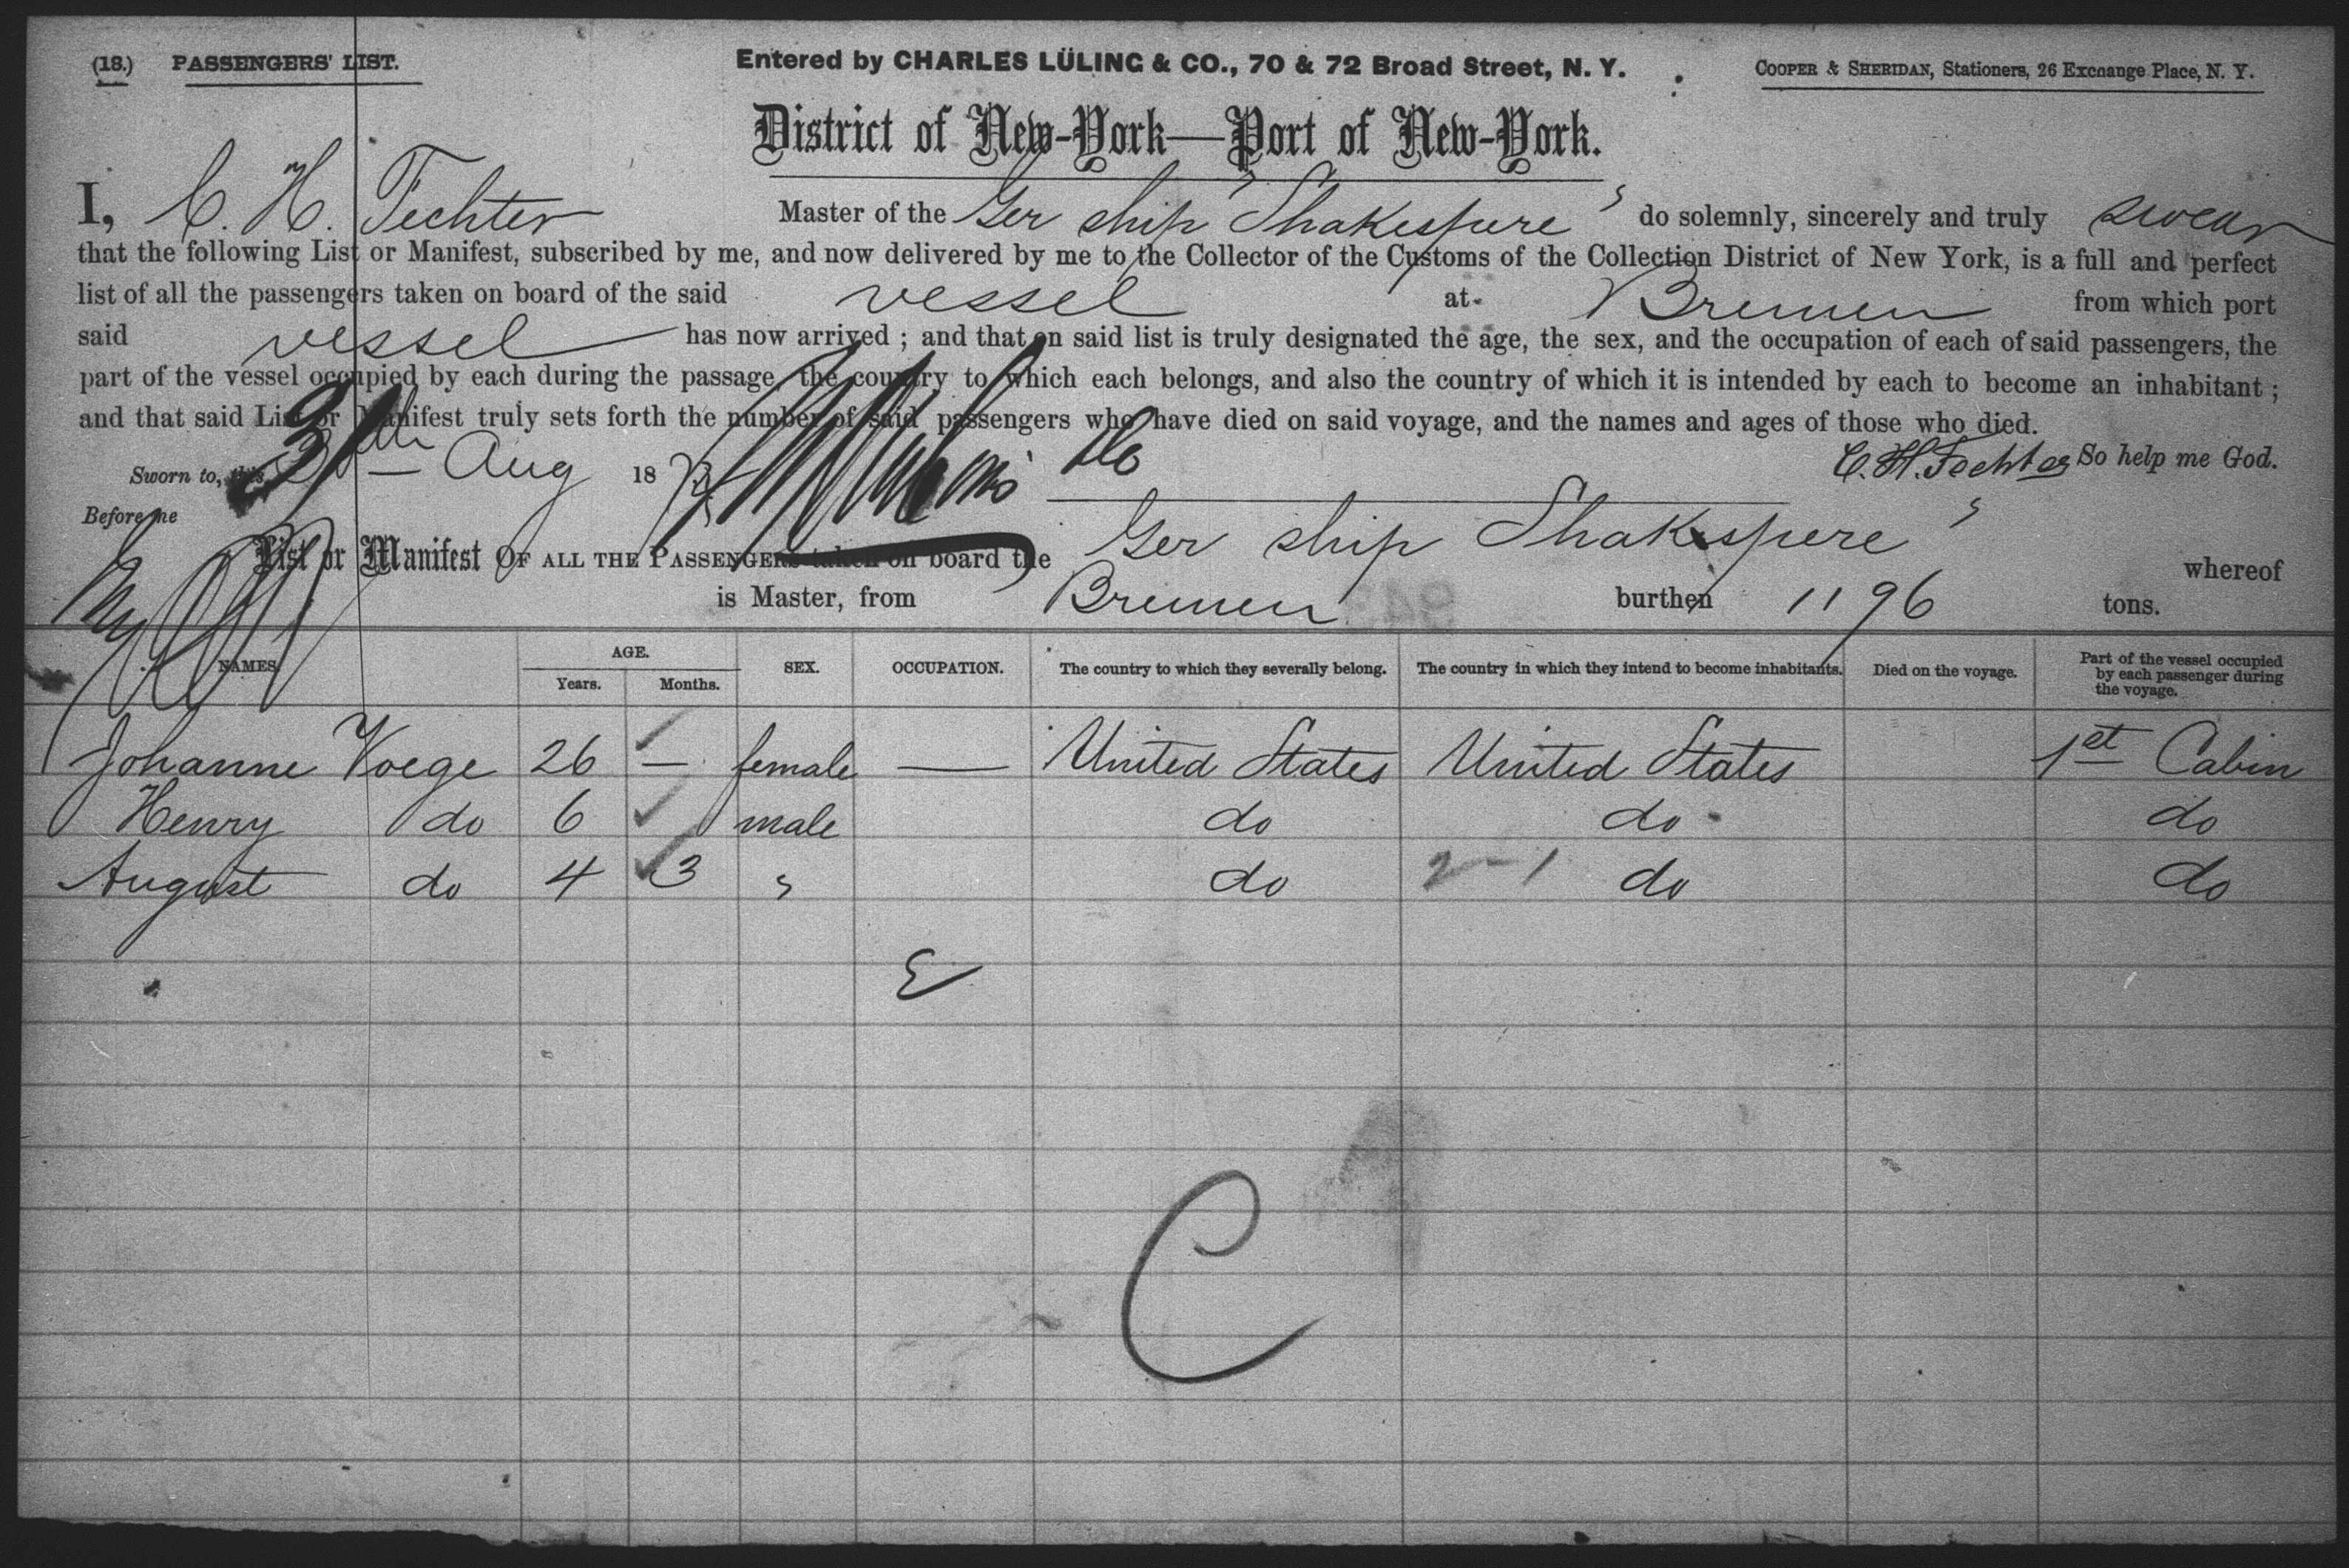 (18.) PASSENGERS' LIST.
Entered by CHARLES LÜLING & CO., 70 & 72 Broad Street, N. Y.
COOPER & SHERIDAN, Stationers, 26 Exchange Place, N. Y.
District of New-York—Port of New-York.
I, C. H. Fechter Master of the Ger ship "Shakespere" do solemnly, sincerely and truly swear
that the following List or Manifest, subscribed by me, and now delivered by me to the Collector of the Customs of the Collection District of New York, is a full and perfect
list of all the passengers taken on board of the said vessel at Bremen from which port
said vessel has now arrived ; and that on said list is truly designated the age, the sex, and the occupation of each of said passengers, the
part of the vessel occupied by each during the passage, the country to which each belongs, and also the country of which it is intended by each to become an inhabitant ;
and that said List or Manifest truly sets forth the number of said passengers who have died on said voyage, and the names and ages of those who died.
Sworn to, this 31 Aug 18 C. H. Fechter So help me God.
Before me
List or Manifest OF ALL THE PASSENGERS taken on board the Ger ship Shakespere" whereof
is Master, from Bremen burthen 1196 tons.
NAMES. AGE. Years. Months. SEX. OCCUPATION. The country to which they severally belong. The country in which they intend to become inhabitants. Died on the voyage. Part of the vessel occupied by each passenger during the voyage.
Johanne Voege 26 — female — United States United States 1st Cabin
Henry do 6 male do do do
August do 4 3 " do 2 - 1 do do
E
C